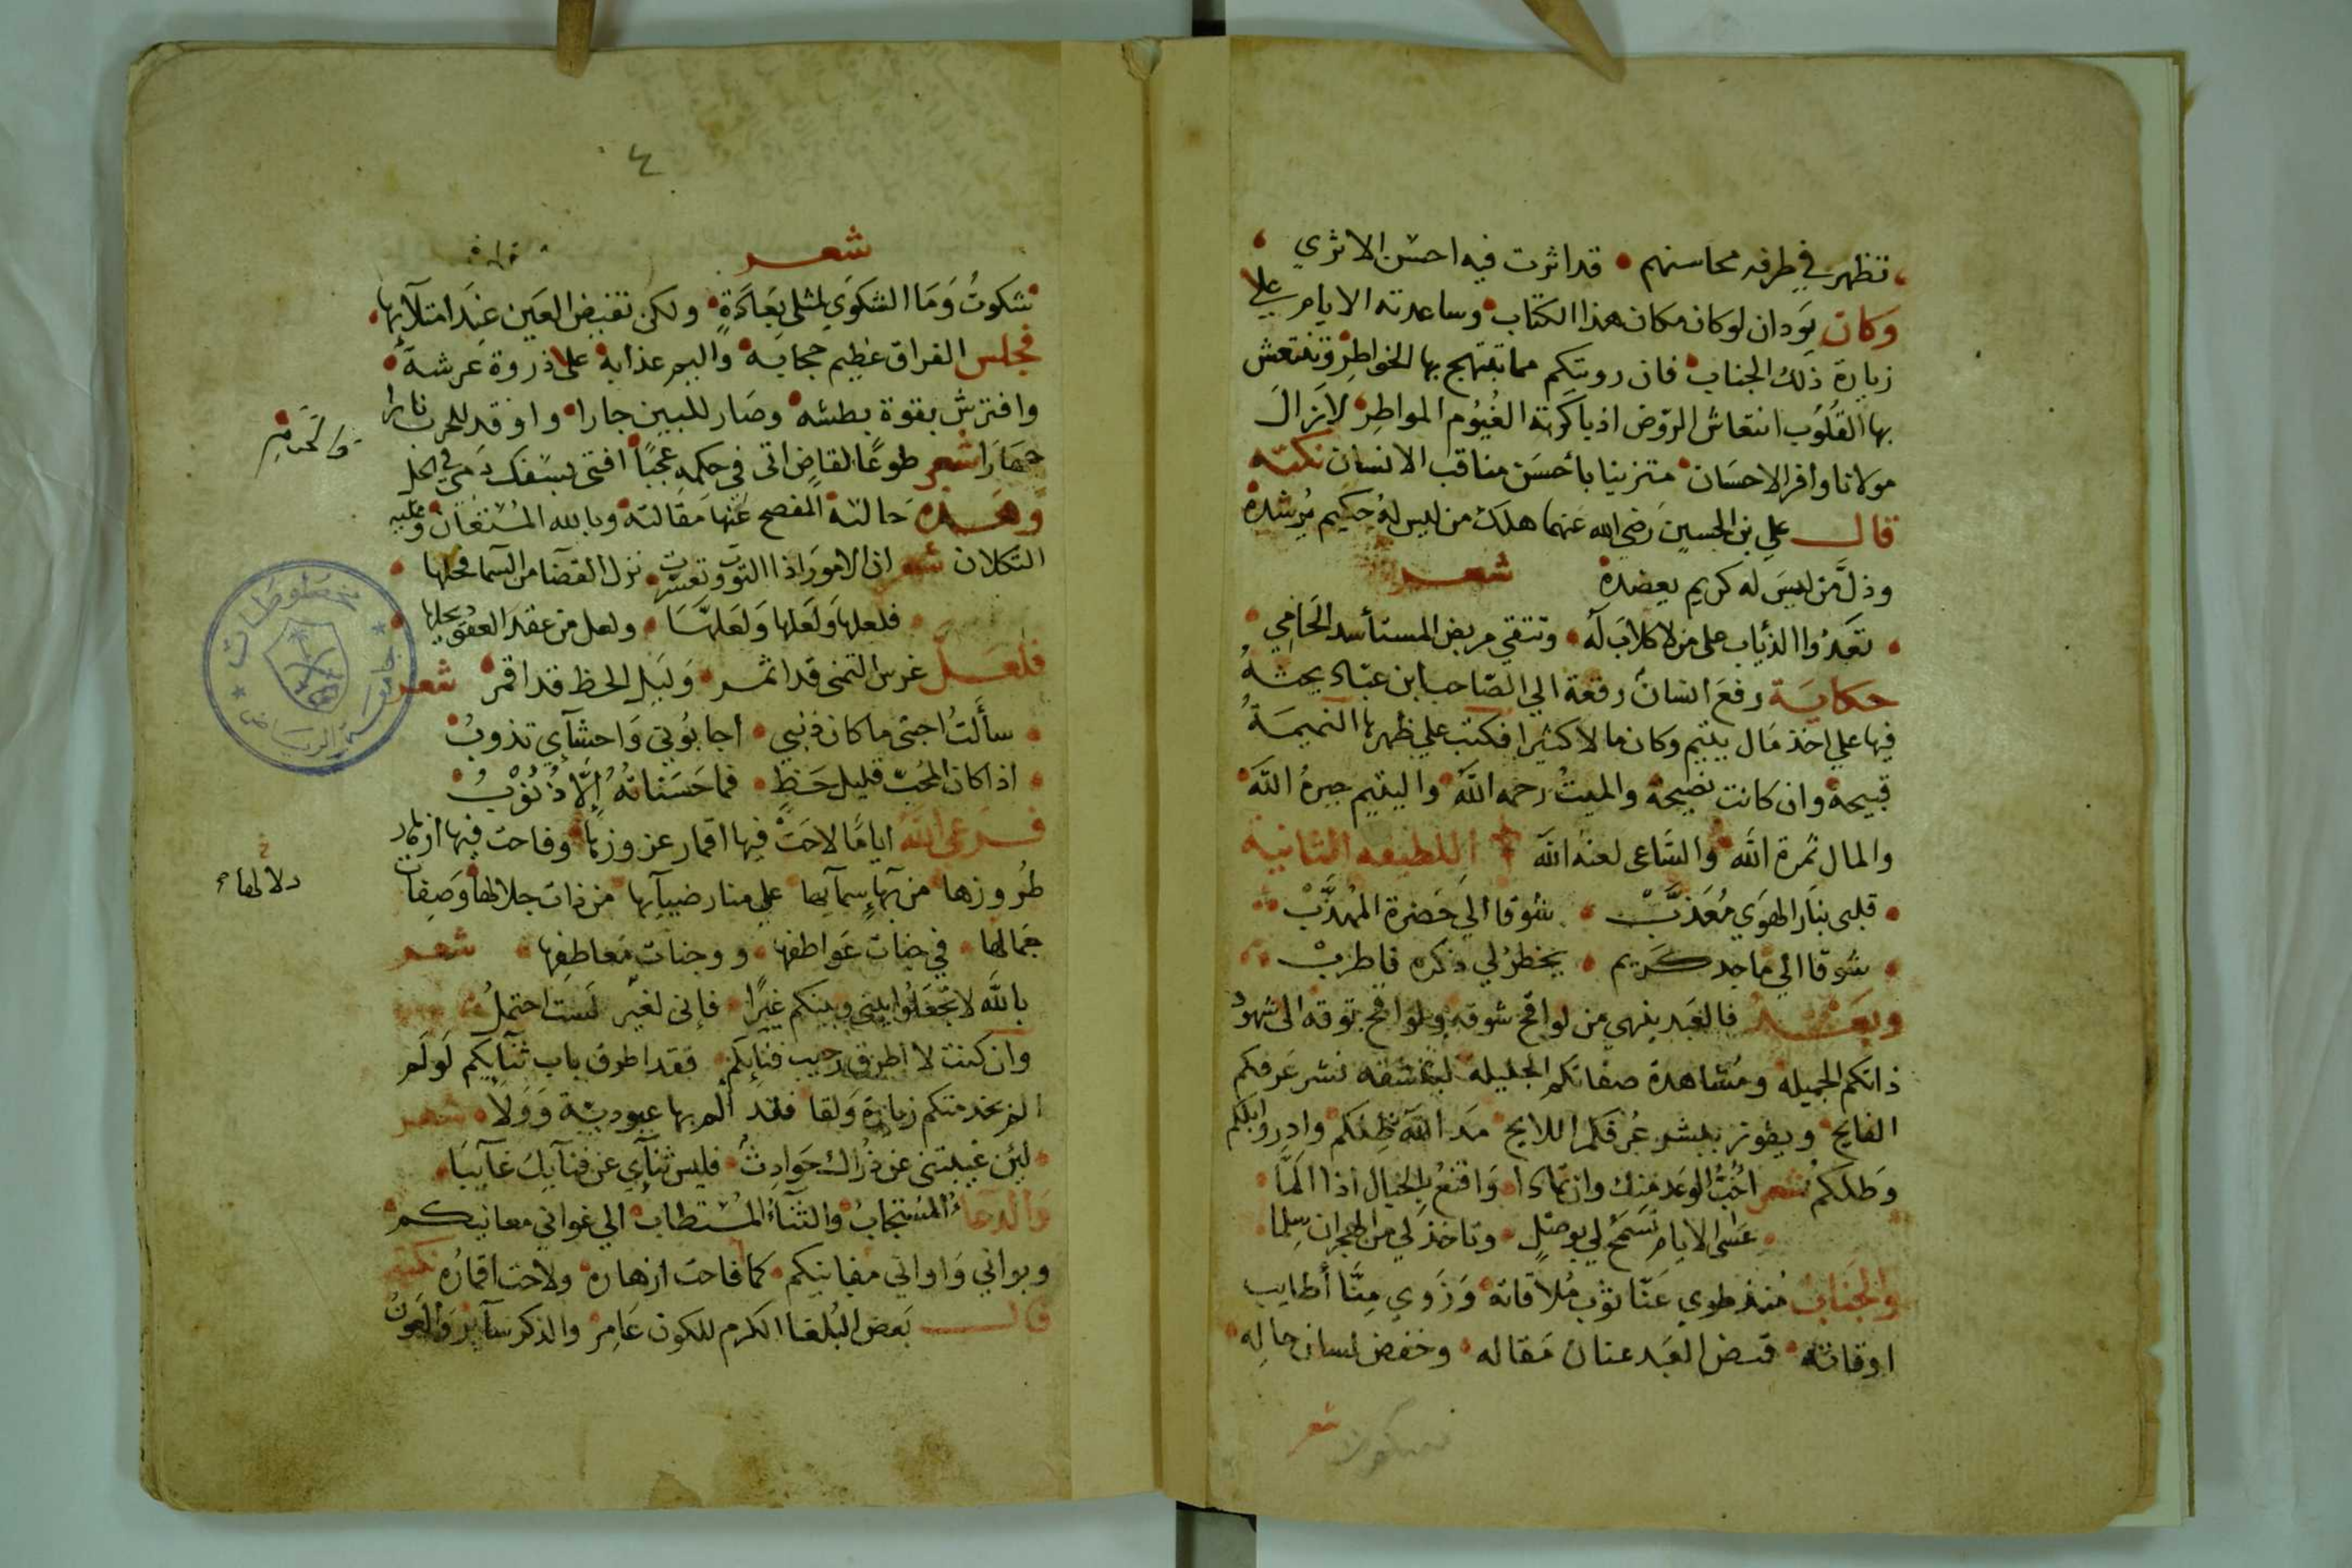 تظهر في طرفه محاسنهم • قد اثرت فيه احسن الاثري
وكان يود ان لو كان مكان هذا الكتاب • وساعدته الايام علي
زيارة ذلك الجناب • فان رويتكم مما تبتهج بها الخواطر • وتنتعش
بها القلوب انتعاش الروض اذ باكرته الغيوم المواطر • لا زال
مولانا وافر الاحسان • متزينا بأحسن مناقب الانسان نكته
قال علي بن الحسين رضي الله عنهما هلك من ليس له حكيم يرشده
وذل من ليس له كريم يعضده شعر
• تعدوا الذياب على من لا كلاب له • وتتقي مربض المستأسد الحامي
حكاية رفع انسان رقعة الي الصاحب ابن عباد يحثه
فيها علي اخذ مال يتيم وكان مالا كثيرا فكتب علي ظهرها النميمة
قبيحة وان كانت نصيحة والميت رحمه الله • واليتيم جبره الله
والمال ثمره الله • والساعى لعنه الله اللطيفه الثانية
• قلبى بنار الهوي معذب • شوقا الي حضرة المهذب
• شوقا الي ماجد كريم • يخطر لي ذكره فاطرب
وبعد فالعبد ينهي من لواقح شوقه ولوافح توقه الى شهود
ذاتكم الجميله ومشاهدة صفاتكم الجليله لينشقه نشر عرفكم
الفايح • ويفوز ببشر عرفكم اللايح • مد الله ظلكم وادر وابلكم
وطلكم شعر احب الوعد منك وان تمادا • واقنع بالخيال اذا الما
• عسى الايام تسمح لي بوصل • وتاخذ لي من الهجران سلما
والجناب منذ طوي عنا ثوب ملاقاته • وزوي منا أطايب
اوقاته • قبض العبد عنان مقاله • وخفض لسان حاله
شعر
٤
شعر
شكوت وما الشكوي لمثلي بعادة • ولكن تفيض العين عند امتلآيها
فجلس الفراق عظيم حجابه • واليم عذابه • على ذروة عرشه
وافترش بقوة بطشه • وصار للبين جارا • واوقد للحرب نارا
شعر طوعا لقاض اتى في حكمه عجبا • افتى بسفك دمي في الحل
وهذه حالته المفصح عنها مقالته • وبالله المستعان • وعليه
التكلان شعر ان الامور اذا التوت وتعسرت • نزل القضآ من السما فحلها
• فلعلها ولعلها ولعلها • ولعل من عقد العقود يحلها
فلعل غرس التمنى قد اثمر • وليل الحظ قد اقمر شعر
• سألت احبتى ما كان ذنبي • اجابوني واحشآي تذوب
• اذا كان المحب قليل حظ • فما حسناته إلا ذنوب
فرعى الله اياما لاحت فيها اقمار • وفاحت فيها ازهار
طروزها • من بهآء سمآيها علي منار ضيآيها من ذات جلالها • وصفات
دلالها
جمالها • في جنات عواطفها • ووجنات معاطفها • شعر
بالله لا تجعلوا بيني وبينكم غيرا • فإنى لغير لست احتمل
وان كنت لا اطرق رحيب فنايكم • فقد اطرق باب ثنآيكم لو لم
الم بخدمتكم زيارة ولقا • فلقد الم بها عبودية وولا • شعر
• لين غيبتنى عن ذراك حوادث • فليس ثنآي عن فنآيك غآيبا
والدعا المستجاب • والثنآء المستطاب • الي غواني معانيكم
ورواني واواني مغانيكم • كما فاحت ازهاره • ولاحت اقماره نكته
قال بعض البلغا الكرم للكون عامر • والذكر سآير • والعون